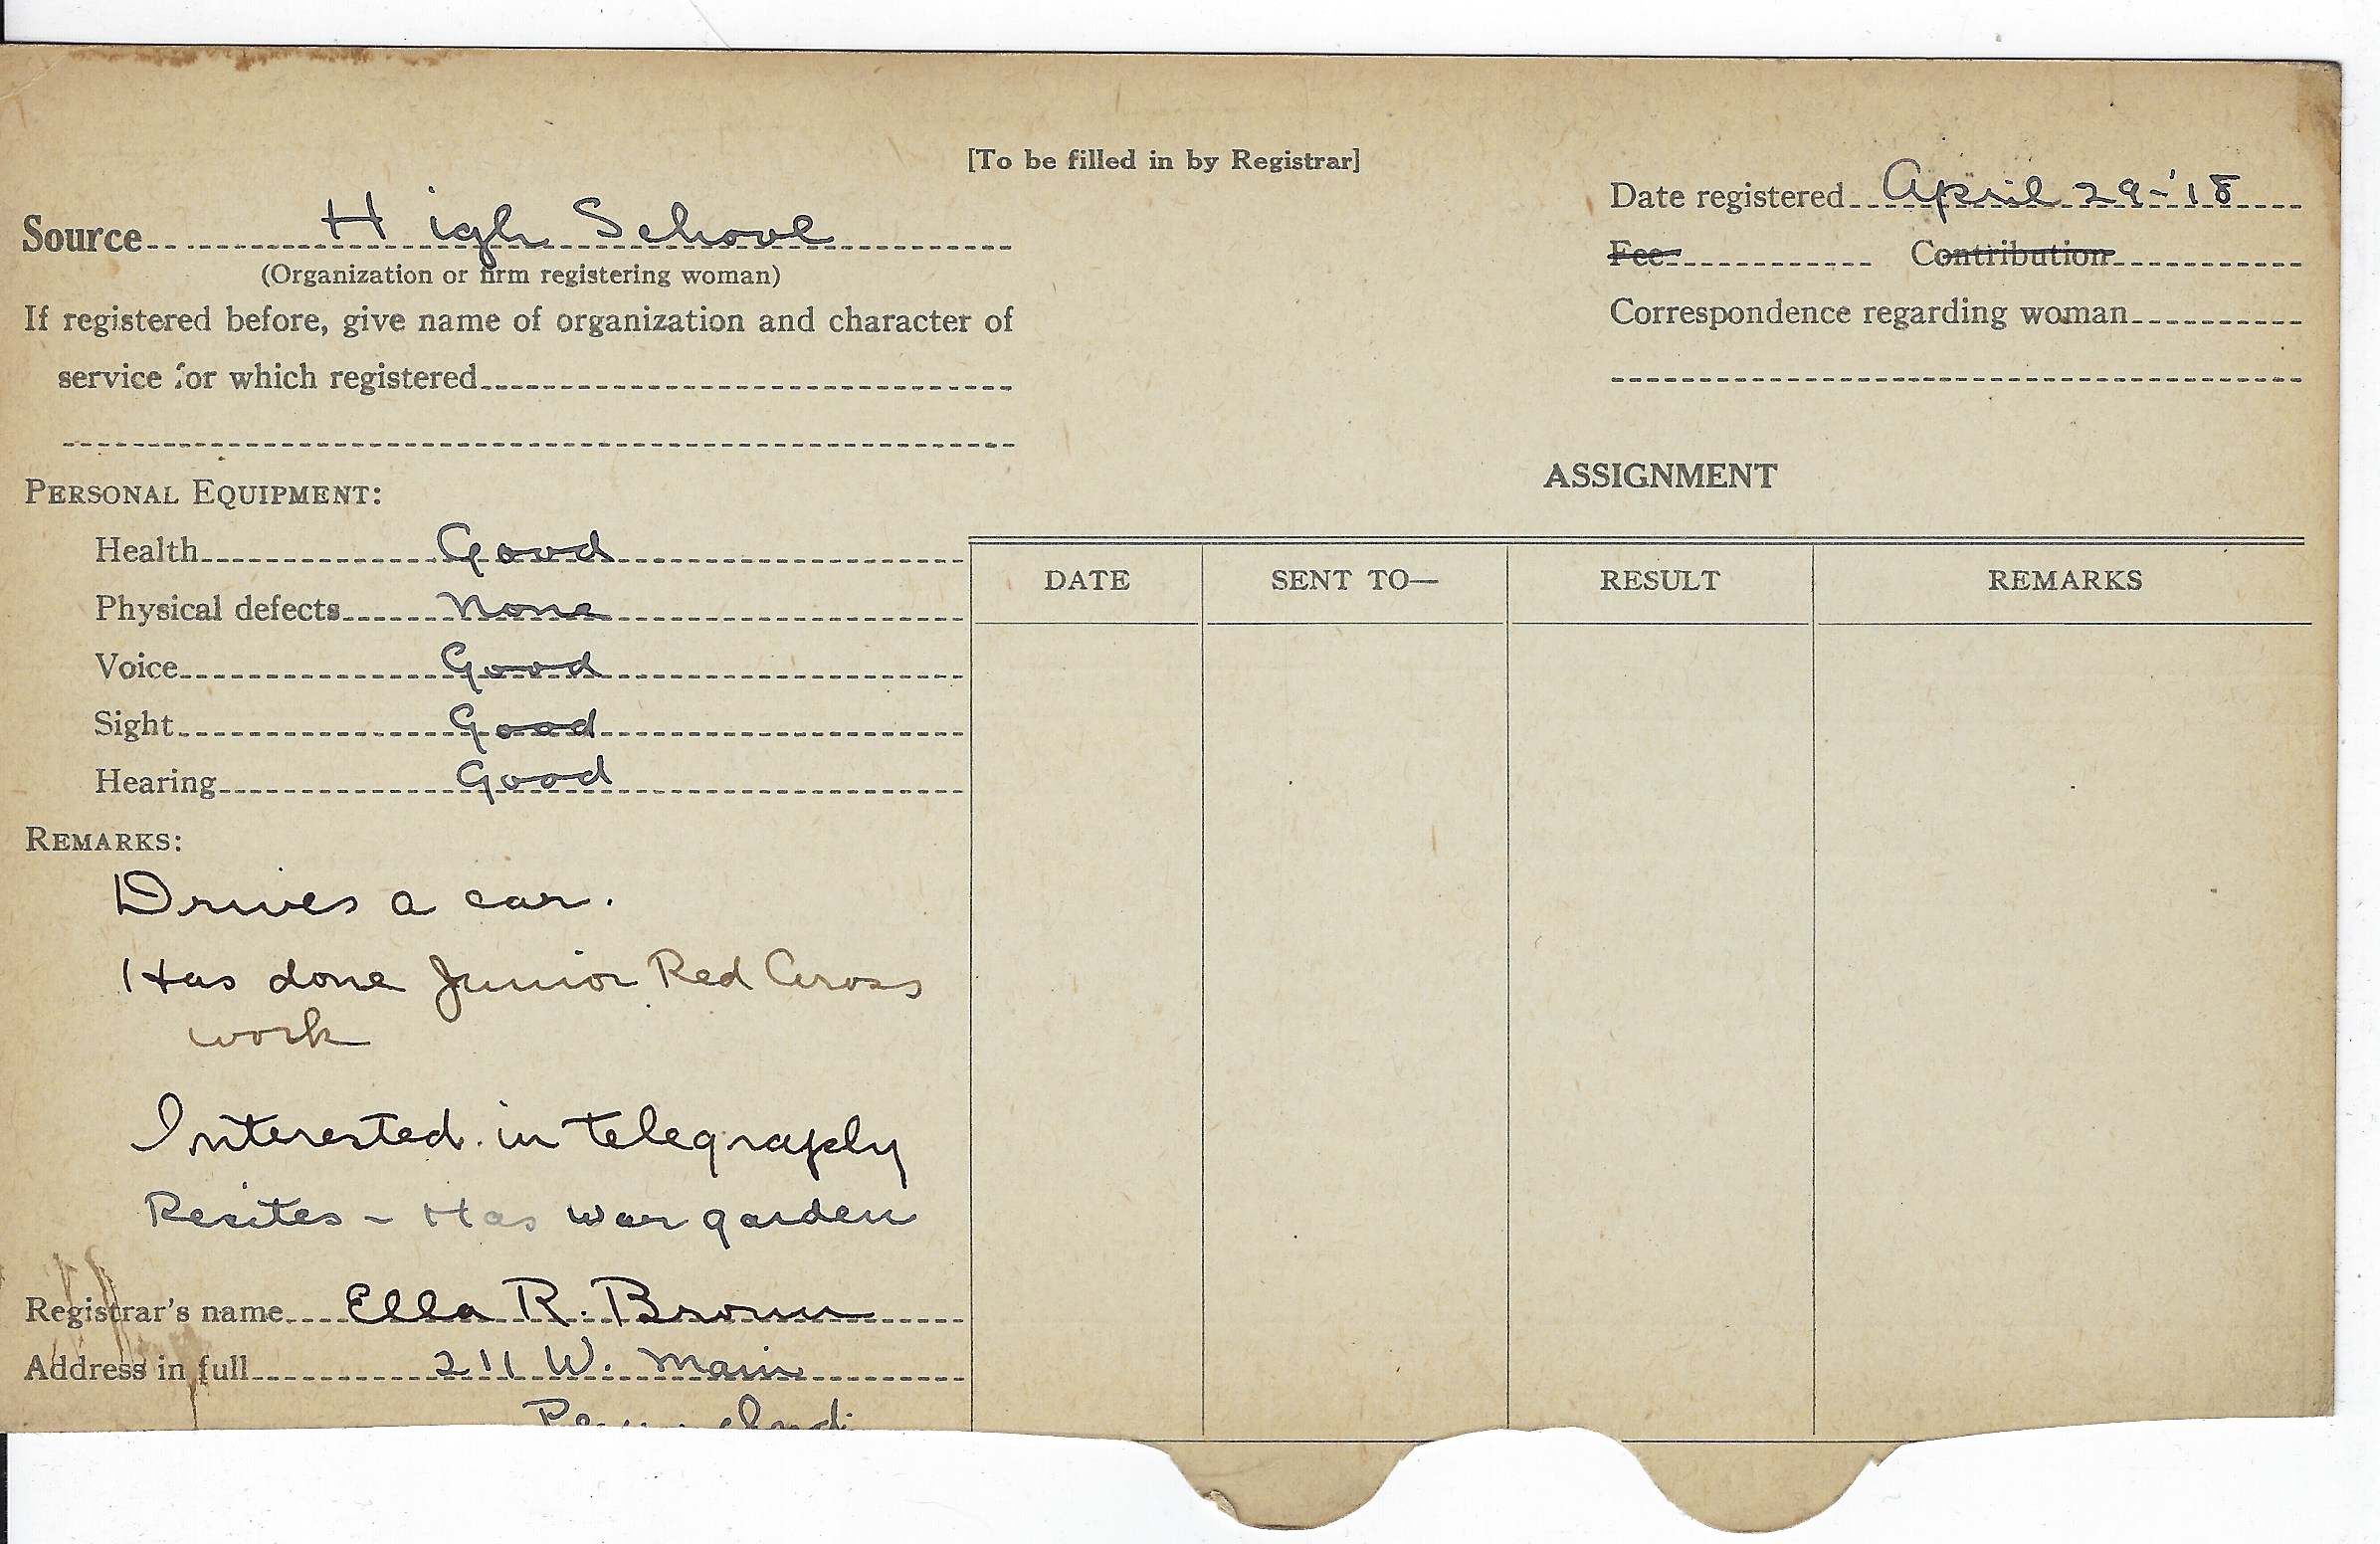 [To be filled in by Registrar]
Date registered April 29-'18
Source High School
(Organization or firm registering woman)
Fee Contribution
If registered before, give name of organization and character of
Correspondence regarding woman
service for which registered
ASSIGNMENT
PERSONAL EQUIPMENT:
Health Good
Physical defects None
Voice Good
Sight Good
Hearing Good
DATE SENT TO— RESULT REMARKS
REMARKS:
Drives a car.
Has done Junior Red Cross
work
Interested in telegraphy
Recites - Has war garden
Registrar's name Ella R. Brown
Address in full 211 W. Main
Ind.